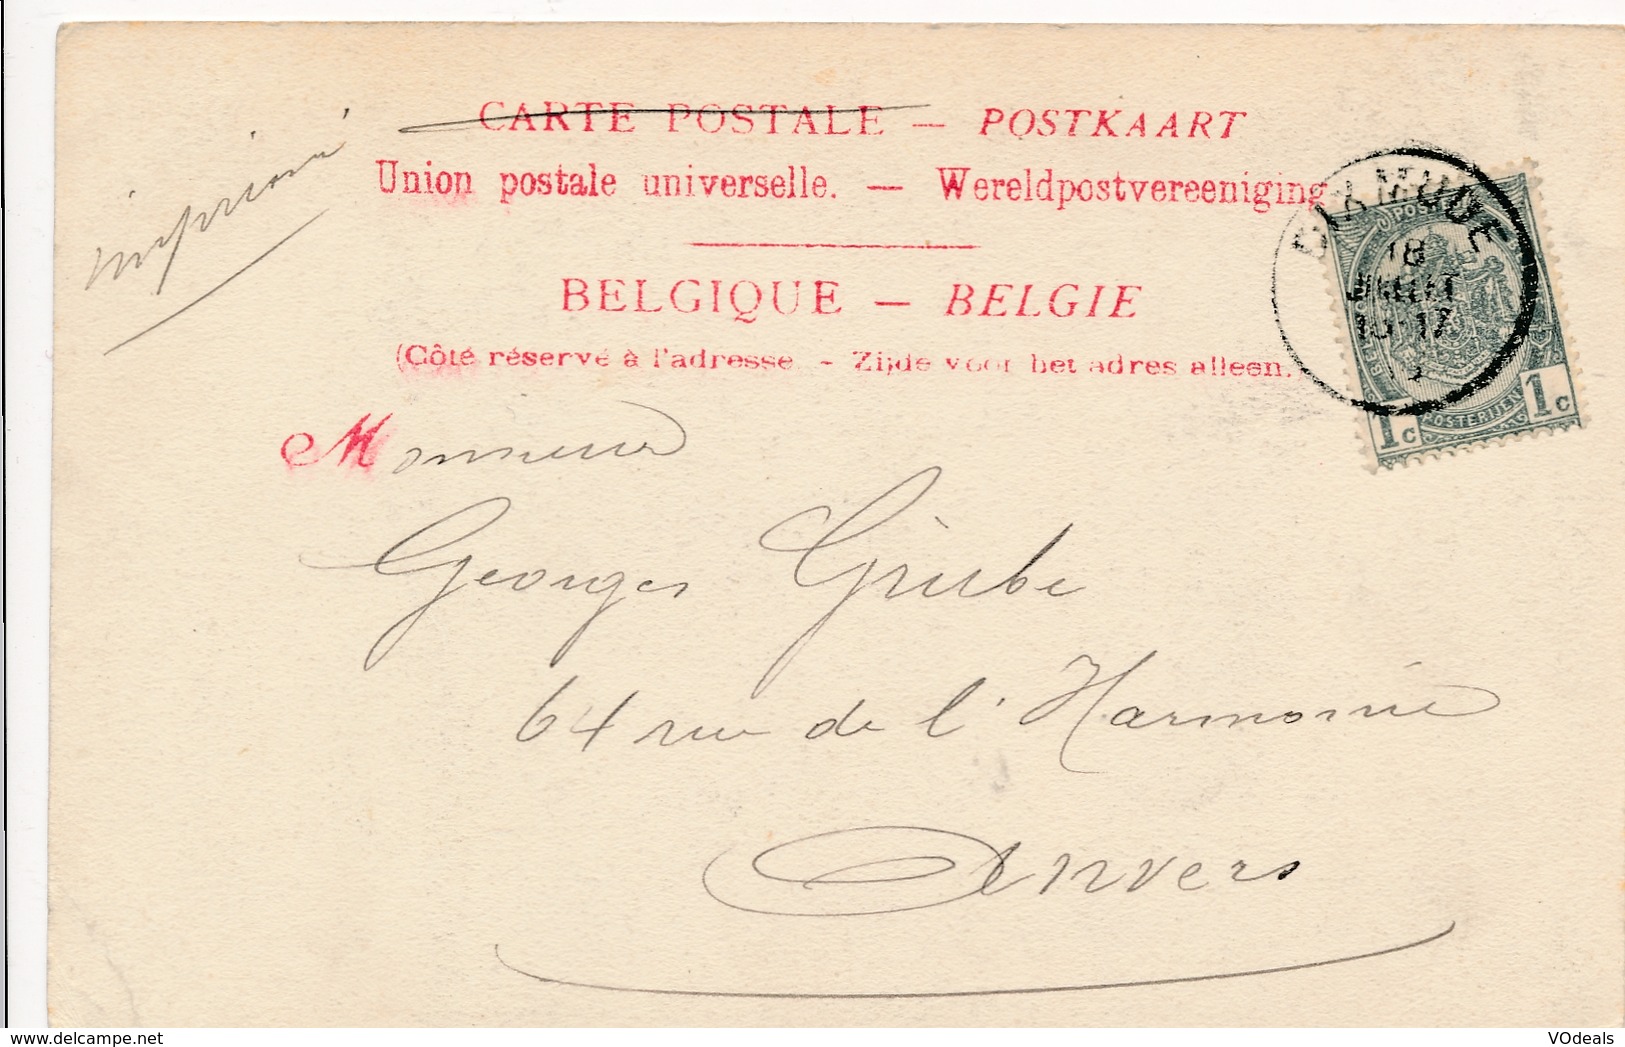 CARTE POSTALE — POSTKAART
imprimé
Union postale universelle. — Wereldpostvereeniging
BELGIQUE — BELGIE
(Côté réservé à l'adresse. - Zijde voor het adres alleen.)
DIXMUDE
18
JUILLET
16-17
POS
1c 1c
Monsieur
Georges Grübe
64 rue de l'Harmonie
Anvers
VOdeals
www.delcampe.net